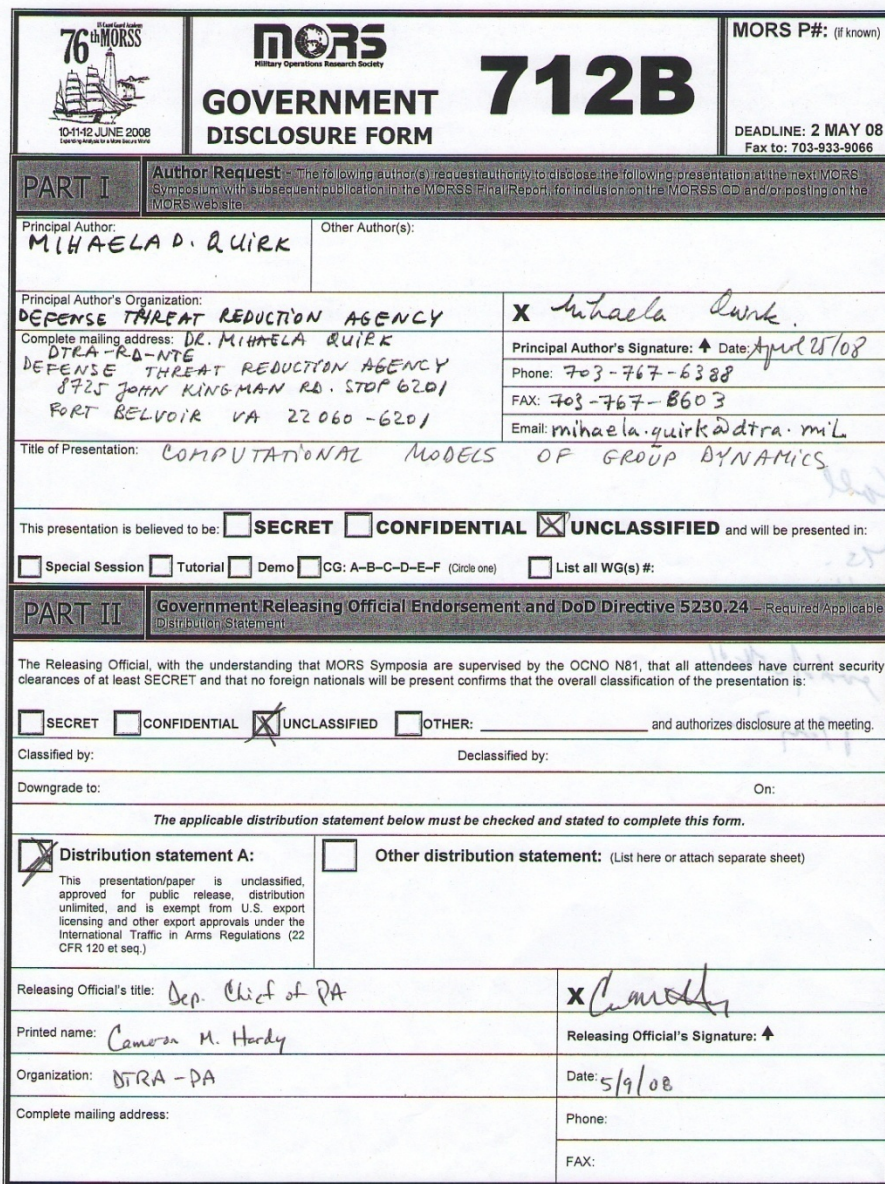 US Coast Guard Academy
76th MORSS
10-11-12 JUNE 2008
Expanding Analysis for a More Secure World
MORS
Military Operations Research Society
GOVERNMENT
DISCLOSURE FORM
712B
MORS P#: (if known)
DEADLINE: 2 MAY 08
Fax to: 703-933-9066
PART I
Author Request - The following author(s) request authority to disclose the following presentation at the next MORS
Symposium with subsequent publication in the MORSS Final Report, for inclusion on the MORSS CD and/or posting on the
MORS web site.
Principal Author:
MIHAELA D. QUIRK
Other Author(s):
Principal Author's Organization:
DEFENSE THREAT REDUCTION AGENCY
Complete mailing address: DR. MIHAELA QUIRK
DTRA-RD-NTE
DEFENSE THREAT REDUCTION AGENCY
8725 JOHN KINGMAN RD. STOP 6201
FORT BELVOIR VA 22060-6201
X Mihaela Quirk.
Principal Author's Signature: ↑ Date: April 25/08
Phone: 703-767-6388
FAX: 703-767-8603
Email: mihaela.quirk@dtra.mil
Title of Presentation: COMPUTATIONAL MODELS OF GROUP DYNAMICS
This presentation is believed to be: SECRET CONFIDENTIAL UNCLASSIFIED and will be presented in:
Special Session Tutorial Demo CG: A–B–C–D–E–F (Circle one) List all WG(s) #:
PART II
Government Releasing Official Endorsement and DoD Directive 5230.24 – Required Applicable
Distribution Statement
The Releasing Official, with the understanding that MORS Symposia are supervised by the OCNO N81, that all attendees have current security
clearances of at least SECRET and that no foreign nationals will be present confirms that the overall classification of the presentation is:
SECRET CONFIDENTIAL UNCLASSIFIED OTHER: and authorizes disclosure at the meeting.
Classified by:
Declassified by:
Downgrade to:
On:
The applicable distribution statement below must be checked and stated to complete this form.
Distribution statement A:
This presentation/paper is unclassified,
approved for public release, distribution
unlimited, and is exempt from U.S. export
licensing and other export approvals under the
International Traffic in Arms Regulations (22
CFR 120 et seq.)
Other distribution statement: (List here or attach separate sheet)
Releasing Official's title: Dep. Chief of PA
Printed name: Cameron M. Hardy
Organization: DTRA-PA
Complete mailing address:
X
Releasing Official's Signature: ↑
Date: 5/9/08
Phone:
FAX: